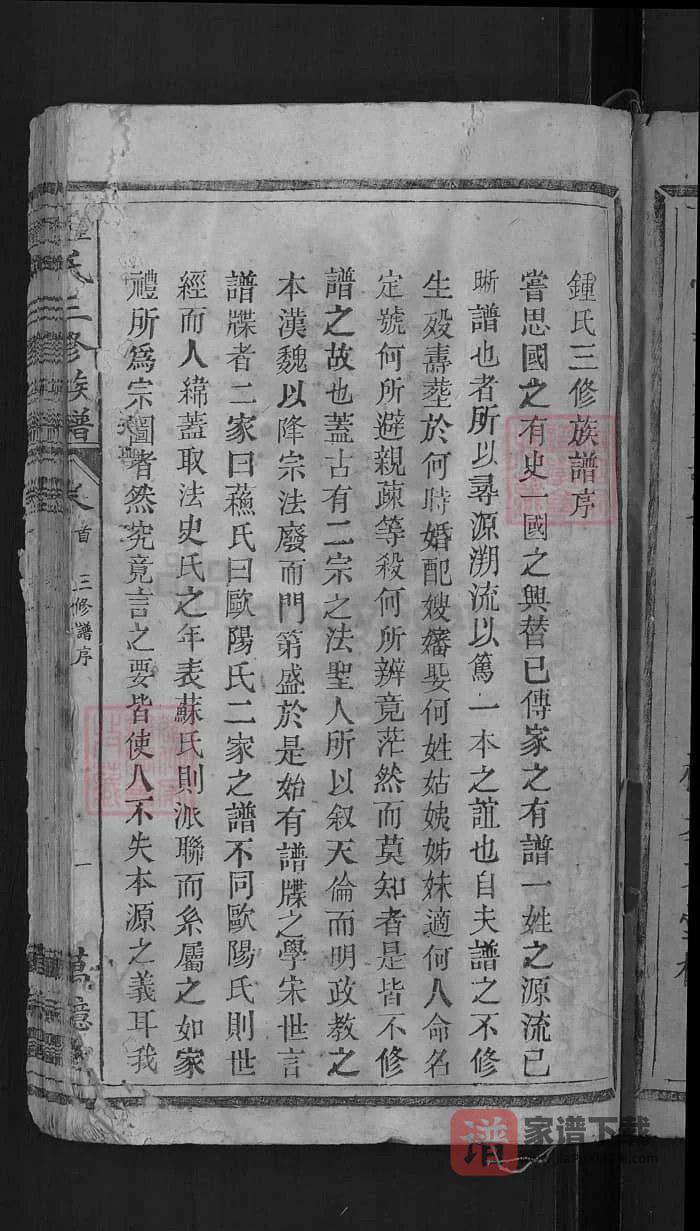 鍾氏三修族譜序
嘗思國之有史一國之興替已傳家之有譜一姓之源流已
晰譜也者所以尋源溯流以篤一本之誼也自夫譜之不修
生歿壽塟於何時婚配嫂嬸娶何姓姑姨姊妹適何人命名
定號何所避親疎等殺何所辨竟茫然而莫知者是皆不修
譜之故也蓋古有二宗之法聖人所以叙天倫而明政教之
本漢魏以降宗法廢而門第盛於是始有譜牒之學宋世言
譜牒者二家曰蘓氏曰歐陽氏二家之譜不同歐陽氏則世
經而人緯蓋取法史氏之年表蘇氏則派聯而系屬之如家
禮所爲宗圖者然究竟言之要皆使人不失本源之義耳我
氏三修族譜
首 三修譜序
一
萬億
譜 家谱下载